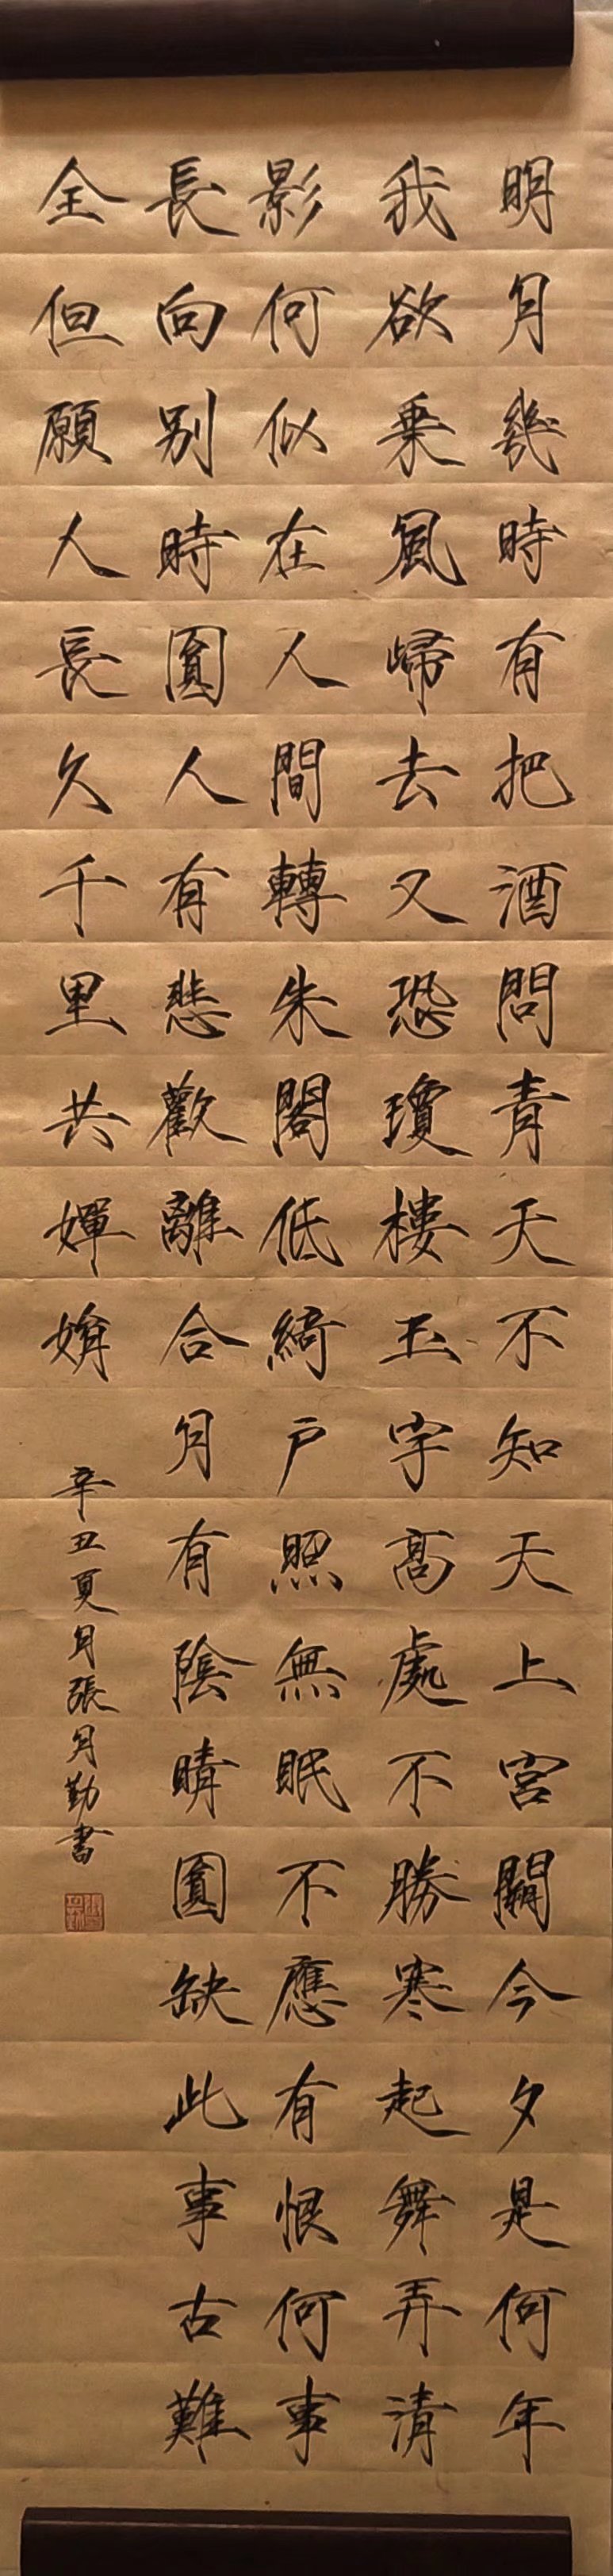 明月幾時有把酒問青天不知天上宮闕今夕是何年
我欲乗風歸去又恐瓊樓玉宇高處不勝寒起舞弄清
影何似在人間轉朱閣低綺戶照無眠不應有恨何事
長向別時圓人有悲歡離合月有陰晴圓缺此事古難
全但願人長久千里共嬋娟
辛丑夏月張月勤書